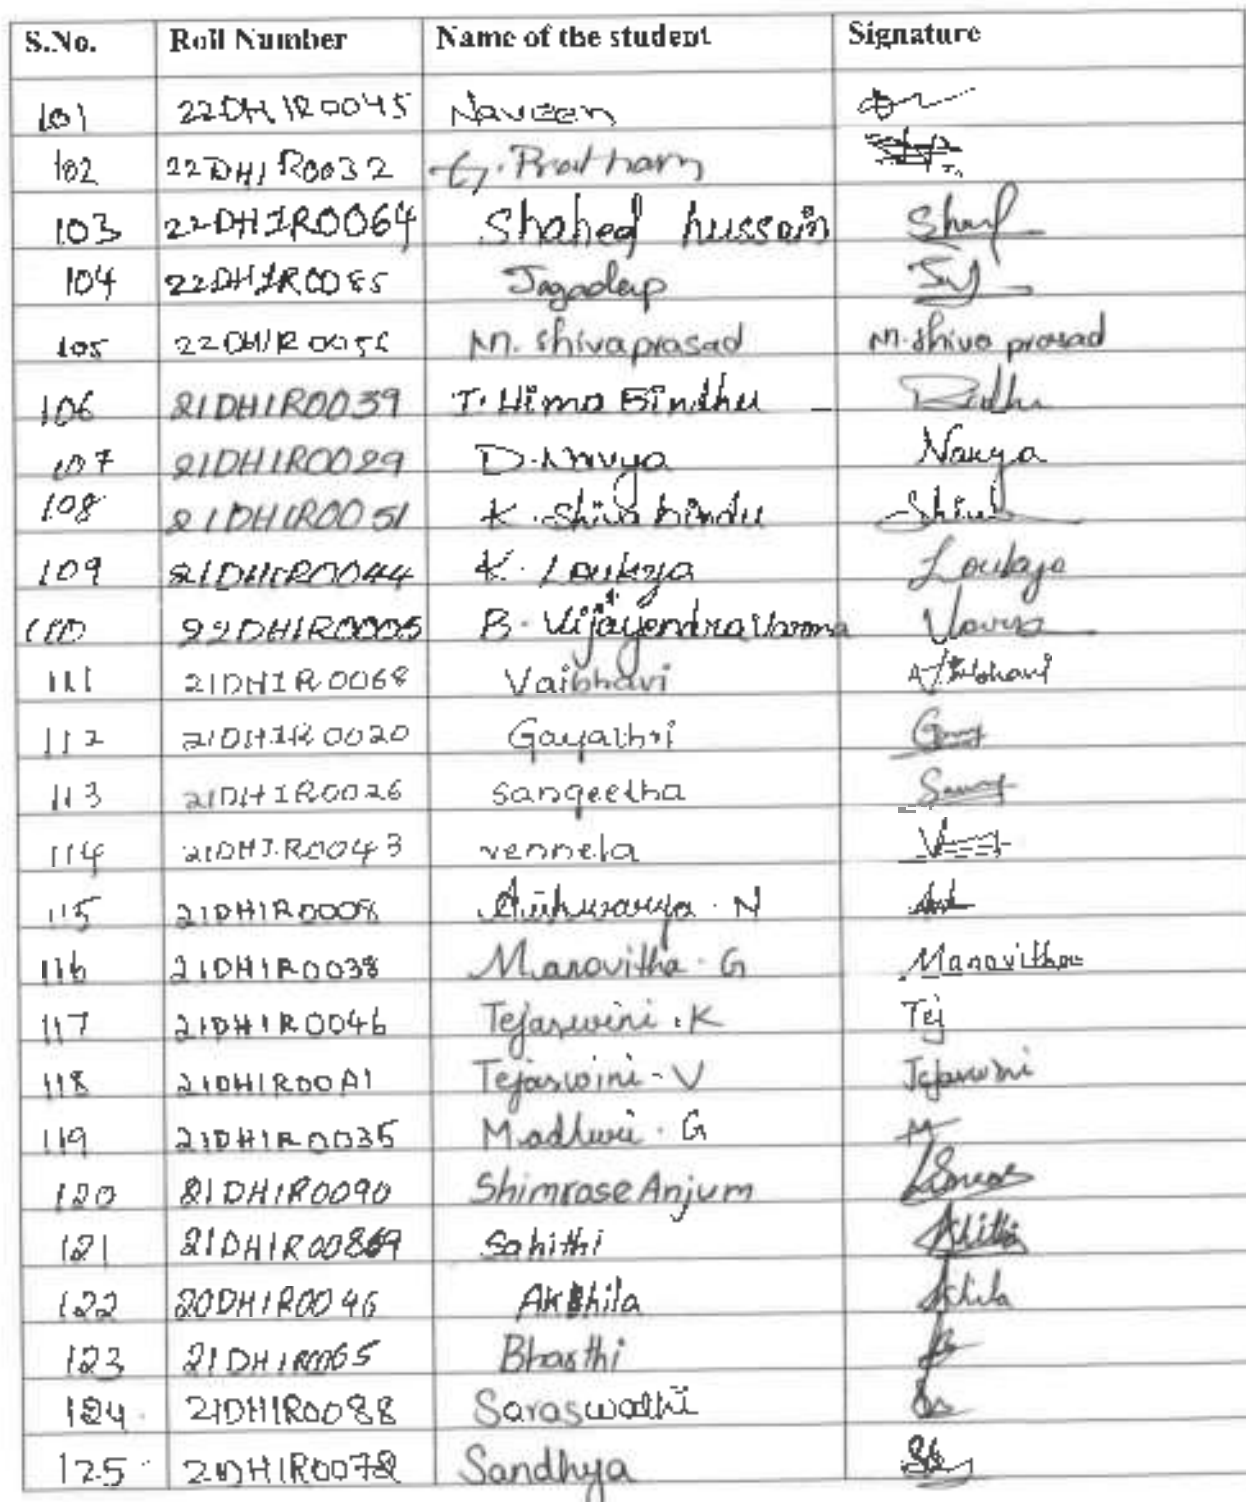 S.No. Roll Number Name of the student Signature
101 22DH1R0045 Naveen
102 22DH1R0032 G. Pratham
103 22DH1R0064 Shahed hussain
104 22DH1R0085 Jagadeep
105 22DH1R0056 M. Shivaprasad M. Shiva prasad
106 21DH1R0039 T. Hima Bindhu
107 21DH1R0029 D. Navya Navya
108 21DH1R0051 K. Shiva bindu
109 21DH1R0044 K. Loukya Loukya
110 22DH1R0005 B. Vijayendra Varma
111 21DH1R0068 Vaibhavi
112 21DH1R0020 Gayathri
113 21DH1R0026 Sangeetha
114 21DH1R0043 vennela
115 21DH1R0008 Aishwarya . N
116 21DH1R0038 Manovitha . G Manovitha
117 21DH1R0046 Tejaswini . K Tej
118 21DH1R00A1 Tejaswini - V Tejaswini
119 21DH1R0035 Madhuri . G M
120 21DH1R0090 Shimrose Anjum
121 Sahithi
122 20DH1R0046 Akshila
123 21DH1R0065 Bharthi
124 21DH1R0088 Saraswathi
125 21DH1R0078 Sandhya